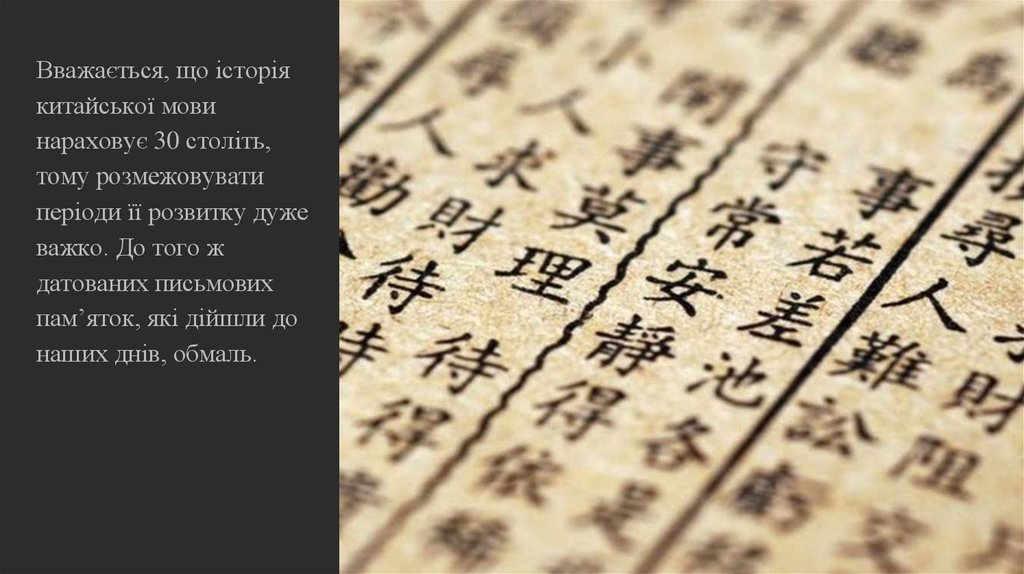 Вважається, що історія
китайської мови
нараховує 30 століть,
тому розмежовувати
періоди її розвитку дуже
важко. До того ж
датованих письмових
пам’яток, які дійшли до
наших днів, обмаль.
財阻交
尋人難訟虧
事若差池各是
守常安靜得依
事莫理待得
人求財待
人勸